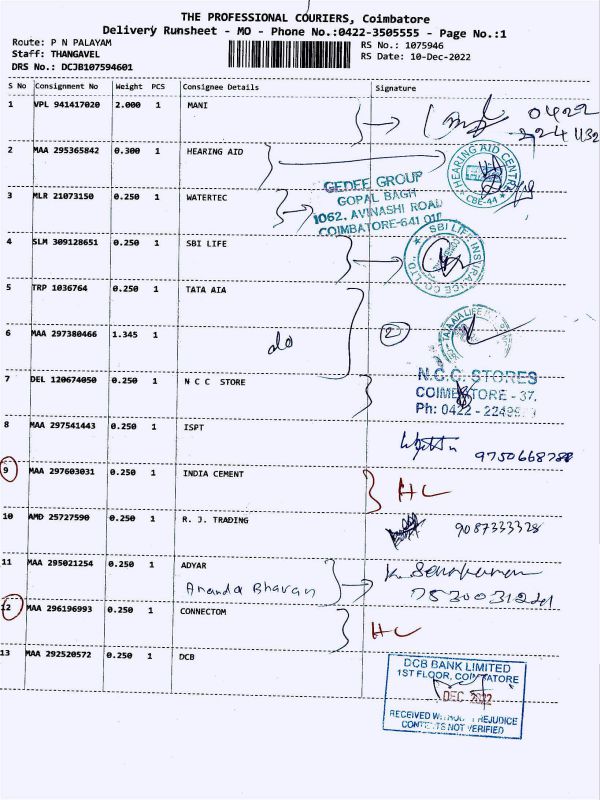 THE PROFESSIONAL COURIERS, Coimbatore
Delivery Runsheet - MO - Phone No.:0422-3505555 - Page No.:1
Route: P N PALAYAM
Staff: THANGAVEL
DRS No.: DCJB107594601
RS No.: 1075946
RS Date: 10-Dec-2022
S No Consignment No Weight PCS Consignee Details Signature
1 VPL 941417020 2.000 1 MANI
0422
2 MAA 295365842 0.300 1 HEARING AID
HEARING AID CENTRE
CBE-44
3 MLR 21073150 0.250 1 WATERTEC
GEDEE GROUP
GOPAL BAGH
1062, AVINASHI ROAD
COIMBATORE-641 018
4 SLM 309128651 0.250 1 SBI LIFE
SBI LIFE INSURANCE CO. LTD.
5 TRP 1036764 0.250 1 TATA AIA
6 MAA 297380466 1.345 1 do 2
TATA AIA LIFE
7 DEL 120674050 0.250 1 N C C STORE
N.C.C. STORES
COIMBATORE - 37.
Ph: 0422 -
8 MAA 297541443 0.250 1 ISPT
9 MAA 297603031 0.250 1 INDIA CEMENT HC
10 AMD 25727590 0.250 1 R. J. TRADING 9087333328
11 MAA 295021254 0.250 1 ADYAR
Ananda Bhavan
12 MAA 296196993 0.250 1 CONNECTOM HC
13 MAA 292520572 0.250 1 DCB
DCB BANK LIMITED
1ST FLOOR, COIMBATORE
DEC 2022
RECEIVED WITHOUT PREJUDICE
CONTENTS NOT VERIFIED